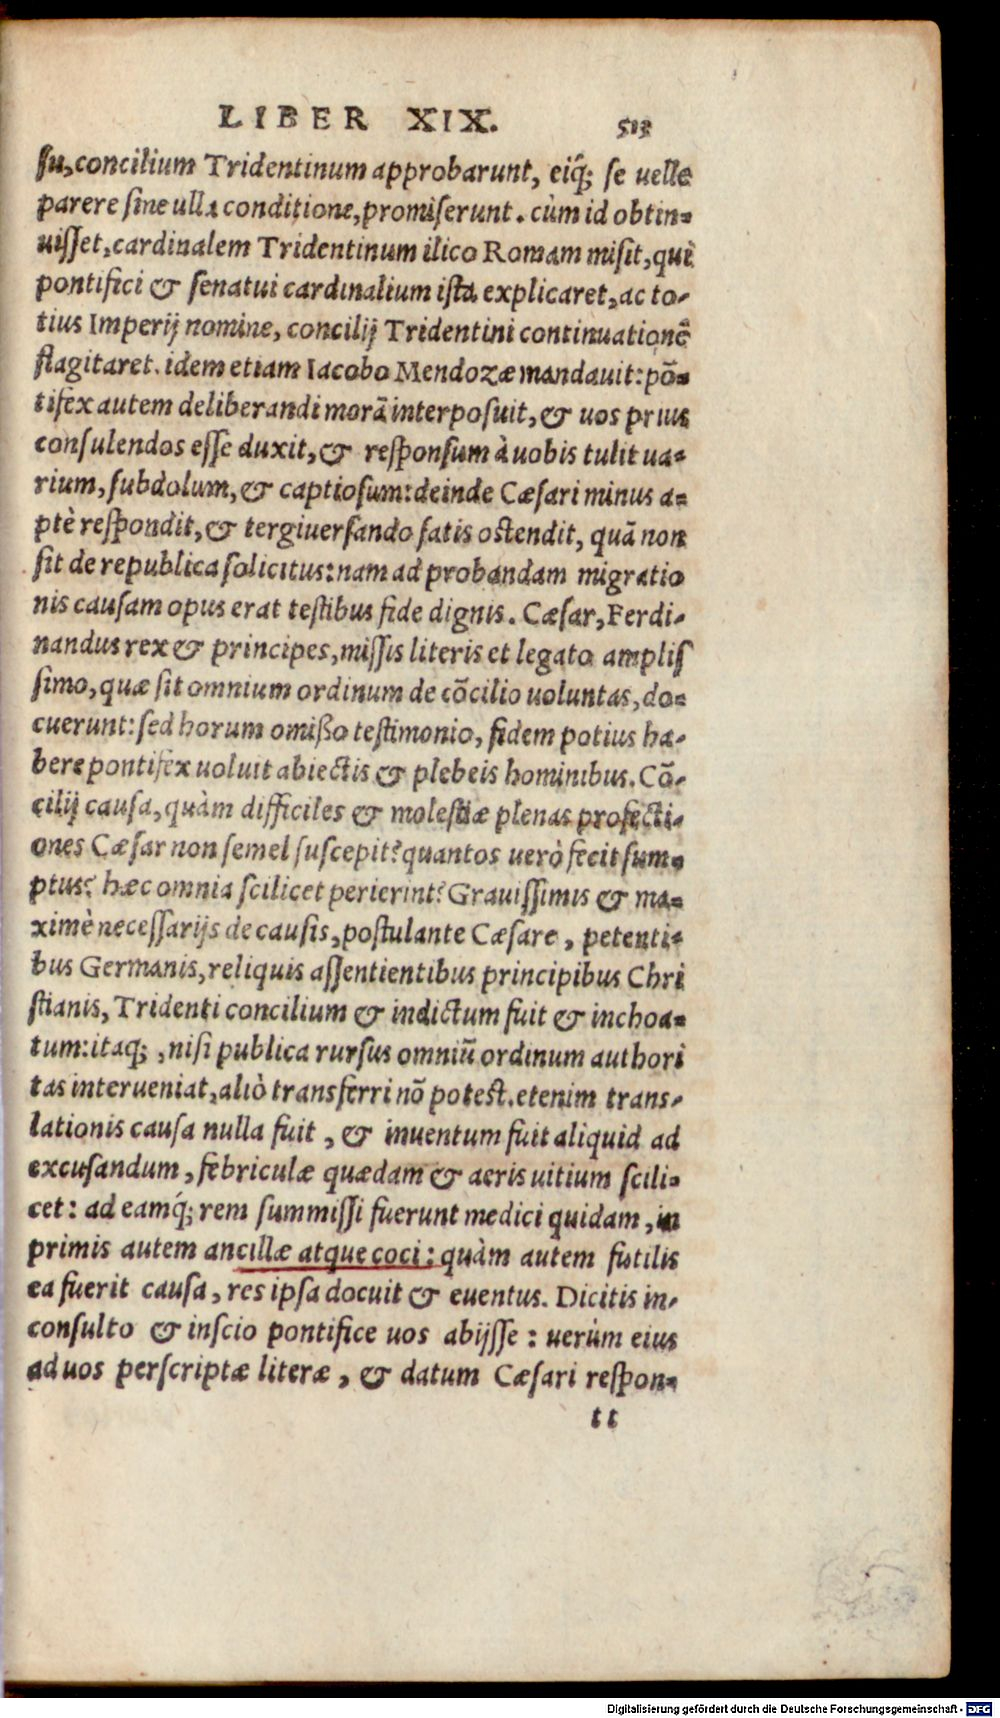 LIBER XIX. 513
su, concilium Tridentinum approbarunt, eiq́; se uelle
parere sine ulla conditione, promiserunt. cùm id obtin-
uisset, cardinalem Tridentinum ilico Romam misit, qui
pontifici & senatui cardinalium ista explicaret, ac to-
tius Imperij nomine, concilij Tridentini continuationē
flagitaret. idem etiam Iacobo Mendozæ mandauit: pō-
tifex autem deliberandi morā interposuit, & uos prius
consulendos esse duxit, & responsum à uobis tulit ua-
rium, subdolum, & captiosum: deinde Cæsari minus a-
ptè respondit, & tergiuersando satis ostendit, quā non
sit de republica solicitus: nam ad probandam migratio
nis causam opus erat testibus fide dignis. Cæsar, Ferdi-
nandus rex & principes, missis literis et legato amplis
simo, quæ sit omnium ordinum de cōcilio uoluntas, do-
cuerunt: sed horum omißo testimonio, fidem potius ha-
bere pontifex uoluit abiectis & plebeis hominibus. Cō-
cilij causa, quàm difficiles & molestiæ plenas profecti-
ones Cæsar non semel suscepit? quantos uerò fecit sum-
ptus? hæc omnia scilicet perierint? Grauissimis & ma-
ximè necessarijs de causis, postulante Cæsare, petenti-
bus Germanis, reliquis assentientibus principibus Chri
stianis, Tridenti concilium & indictum fuit & inchoa-
tum: itaq;, nisi publica rursus omniū ordinum authori
tas interueniat, aliò transferri nō potest. etenim trans-
lationis causa nulla fuit, & inuentum fuit aliquid ad
excusandum, febriculæ quædam & aeris uitium scili-
cet: ad eamq́; rem summissi fuerunt medici quidam, in
primis autem ancillæ atque coci: quàm autem futilis
ea fuerit causa, res ipsa docuit & euentus. Dicitis in-
consulto & inscio pontifice uos abijsse: uerùm eius
ad uos perscriptæ literæ, & datum Cæsari respon-
tt
Digitalisierung gefördert durch die Deutsche Forschungsgemeinschaft - DFG